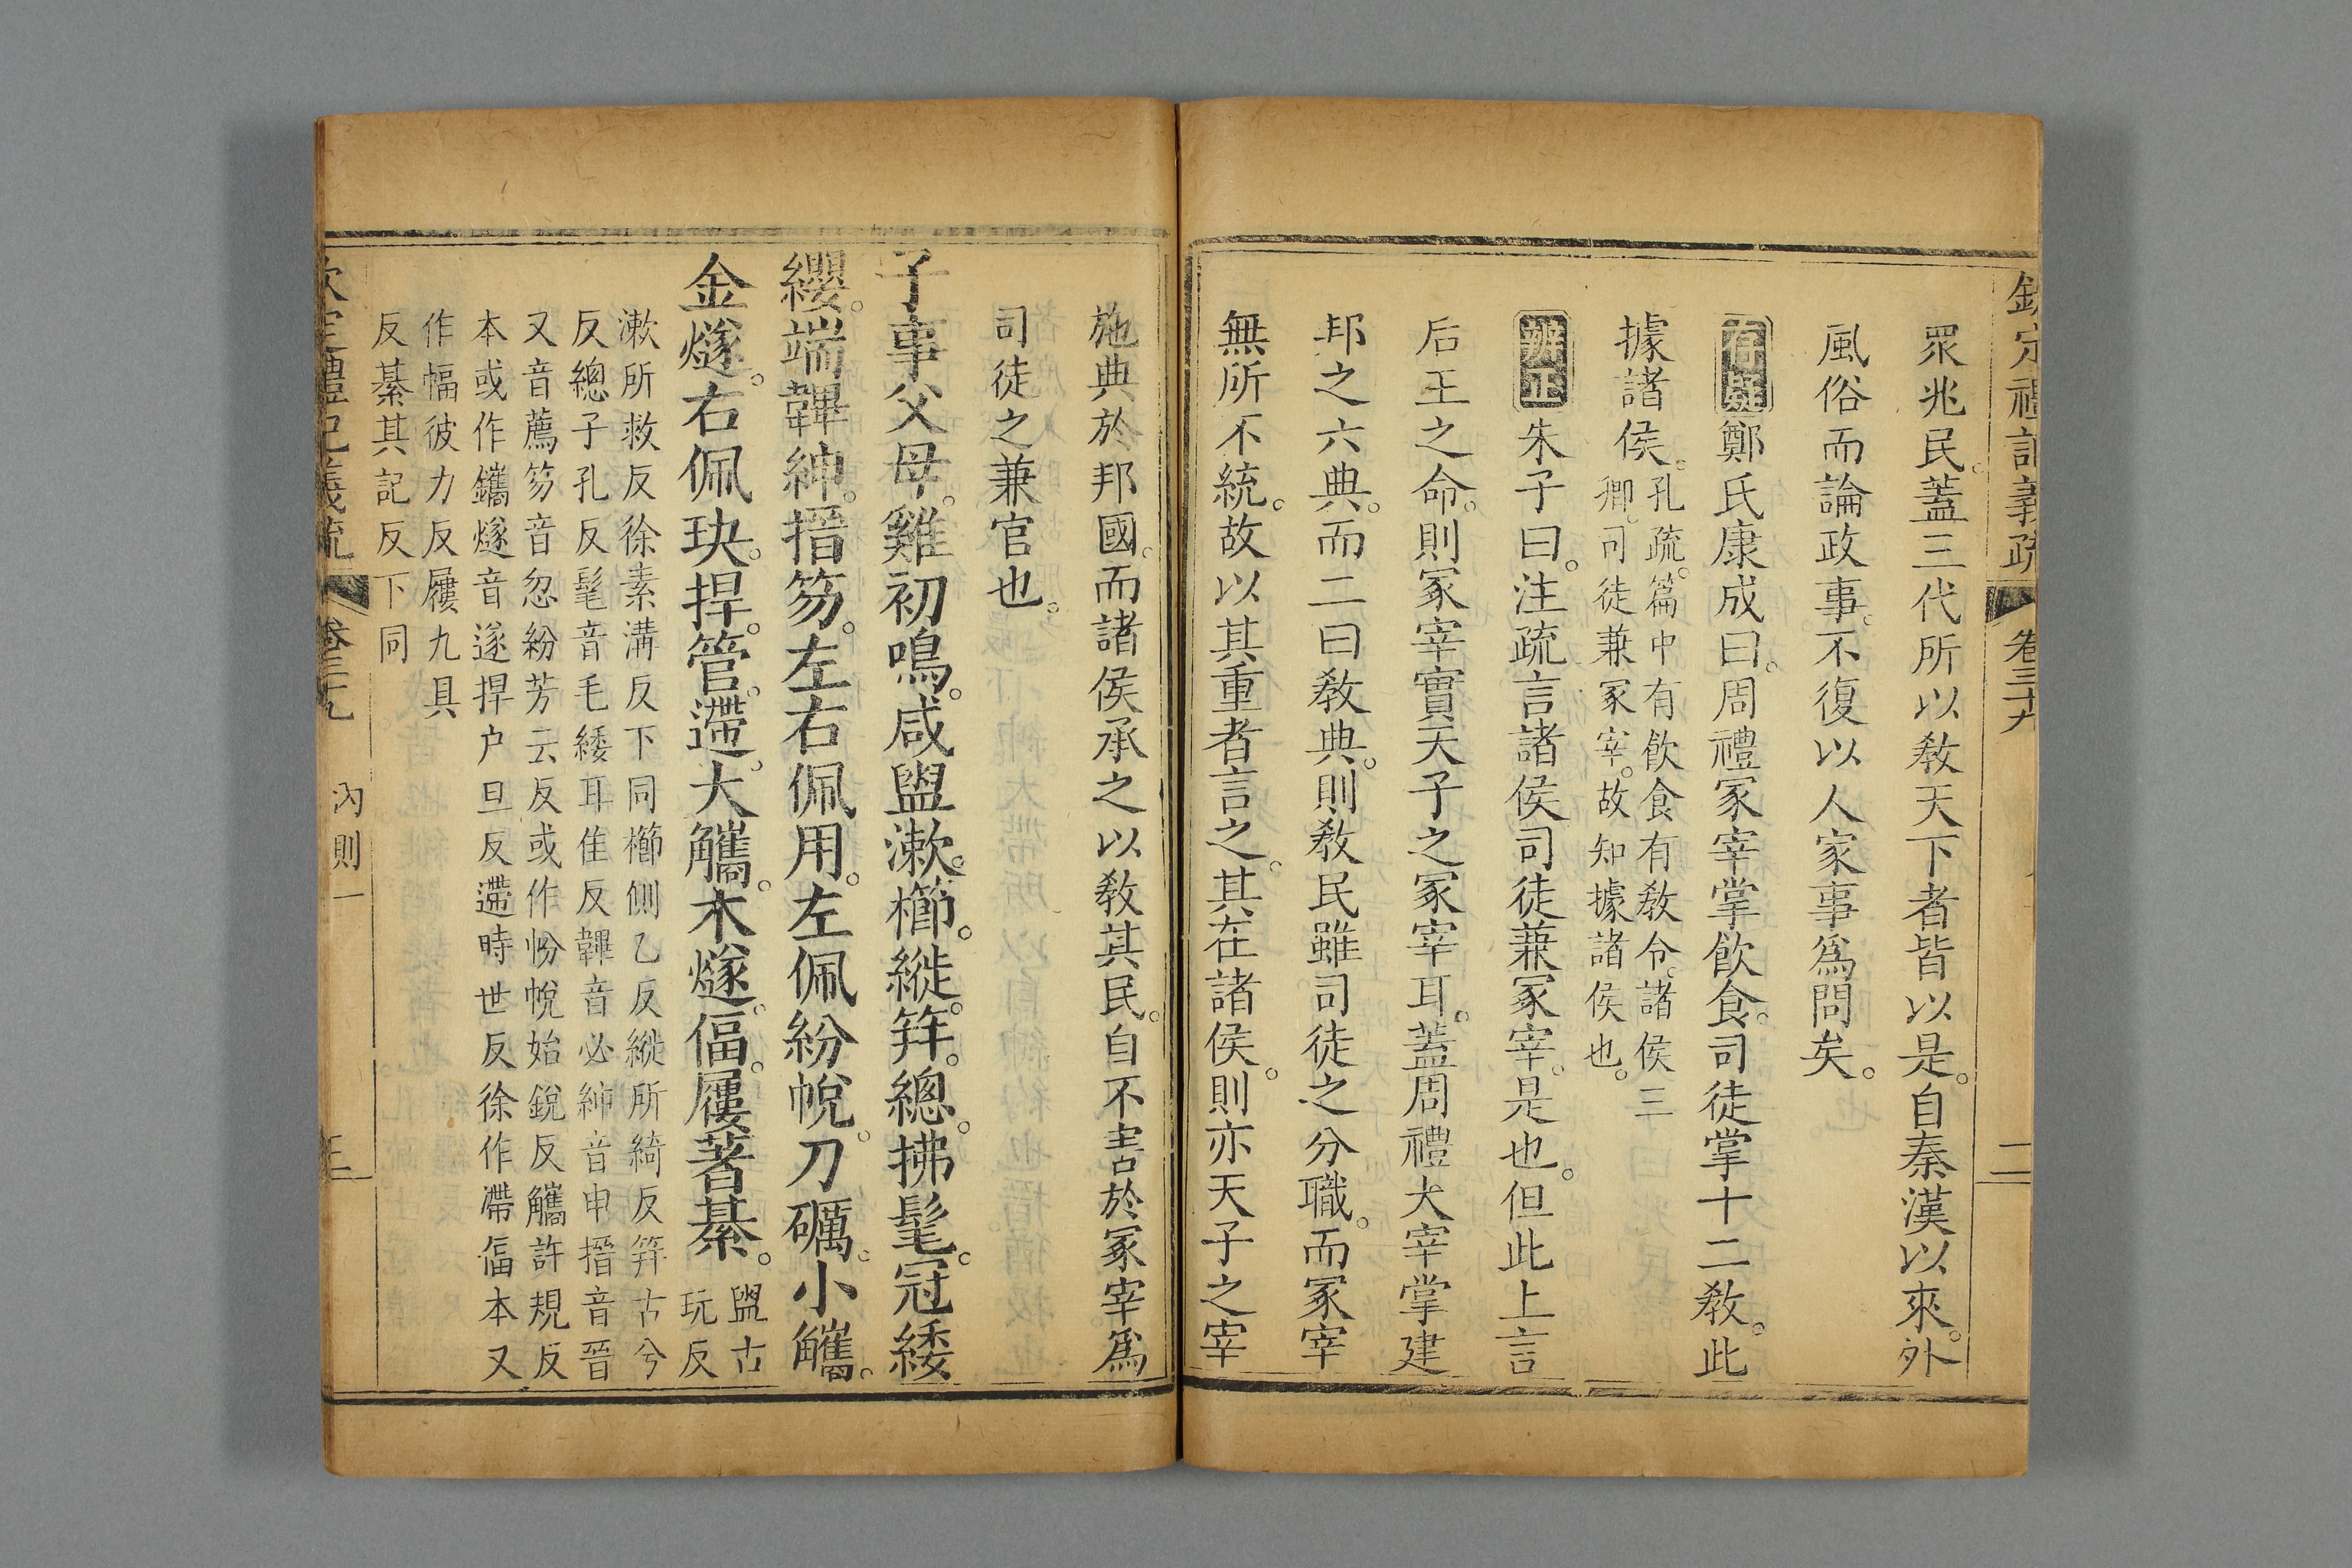 欽定禮記義疏 卷三十九 二
眾兆民。蓋三代所以敎天下者皆以是。自秦漢以來。外
風俗而論政事。不復以人家事爲問矣。
存疑鄭氏康成曰。周禮冢宰掌飲食。司徒掌十二敎。此
據諸侯。孔疏。篇中有飲食有敎令。諸侯三
卿。司徒兼冢宰。故知據諸侯也。
辨正朱子曰。注疏言諸侯司徒兼冢宰。是也。但此上言
后王之命。則冢宰實天子之冢宰耳。蓋周禮大宰掌建
邦之六典。而二曰敎典。則敎民雖司徒之分職。而冢宰
無所不統。故以其重者言之。其在諸侯。則亦天子之宰
施典於邦國。而諸侯承之以敎其民。自不害於冢宰爲
司徒之兼官也。
子事父母。雞初鳴。咸盥漱。櫛。縰。笄。總。拂髦。冠緌
纓。端韠紳。搢笏。左右佩用。左佩紛帨。刀礪。小觿。
金燧。右佩玦。捍。管。遰。大觿。木燧。偪。屨著綦。盥古
玩反
漱所救反徐素溝反下同櫛側乙反縰所綺反笄古兮
反總子孔反髦音毛緌耳隹反韠音必紳音申搢音晉
又音薦笏音忽紛芳云反或作帉帨始銳反觿許規反
本或作鑴燧音遂捍户旦反遰時世反徐作滯偪本又
作幅彼力反屨九具
反綦其記反下同
欽定禮記義疏 卷三十九 內則一 三